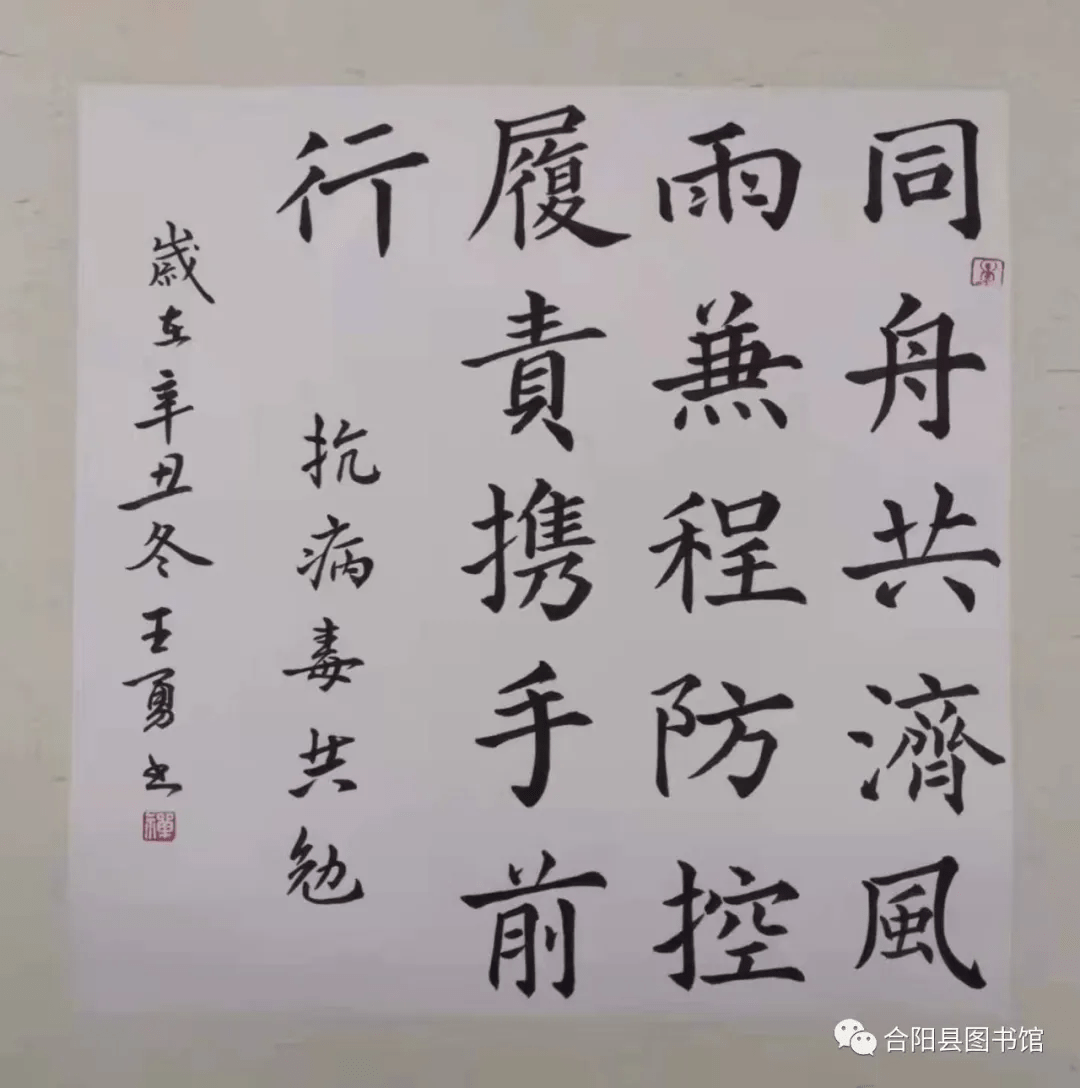 同舟共濟風
雨兼程防控
履責携手前
行
抗病毒共勉
歲在辛丑冬王勇书
禪
合阳县图书馆